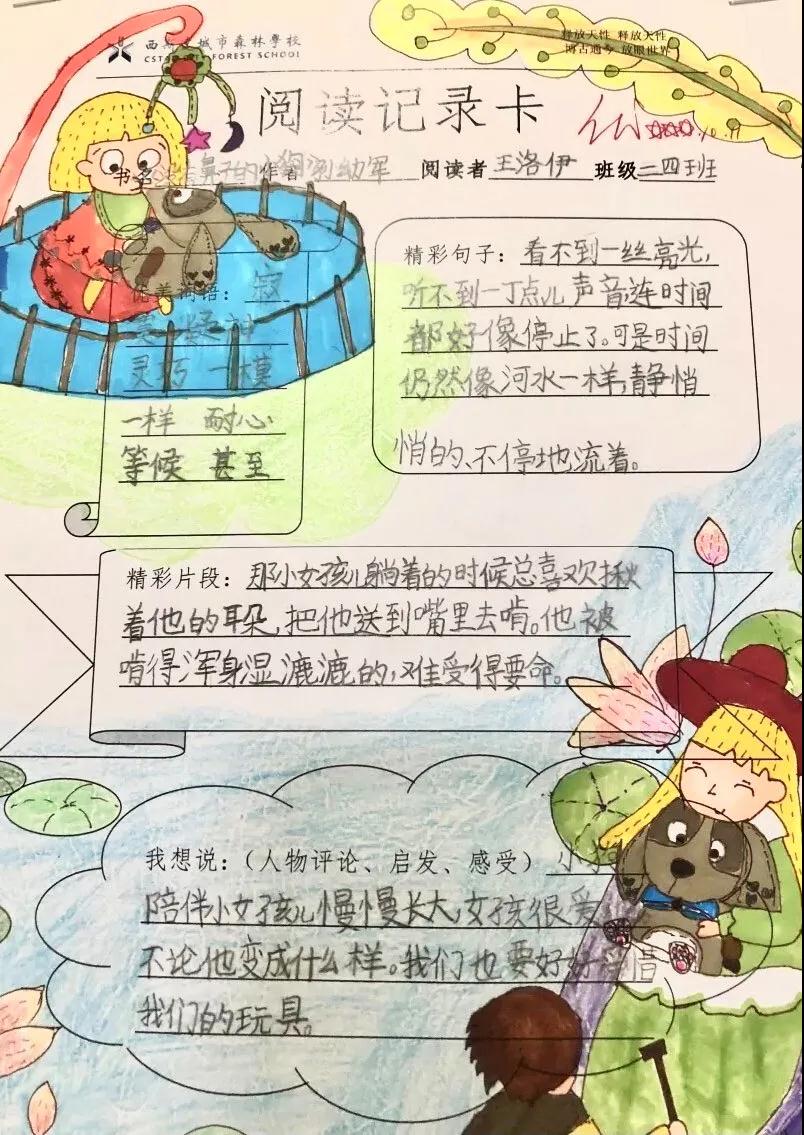 城市森林學校
FOREST SCHOOL
释放天性 释放天性
博古通今 放眼世界
阅读记录卡
书名 鼻子的小狗 作者 刘幼军 阅读者 王洛伊 班级 二四班
精彩句子：看不到一丝亮光,
听不到一丁点儿声音,连时间
都好像停止了。可是时间
仍然像河水一样,静悄
悄的、不停地流着。
优美词语：寂
灵巧 一模
一样 耐心
等候 甚至
精彩片段：那小女孩儿躺着的时候总喜欢揪
着他的耳朵,把他送到嘴里去啃。他被
啃得浑身湿漉漉的,难受得要命。
我想说：(人物评论、启发、感受) 小
陪伴小女孩儿慢慢长大,女孩很爱
不论他变成什么样。我们也要好好惜
我们的玩具。